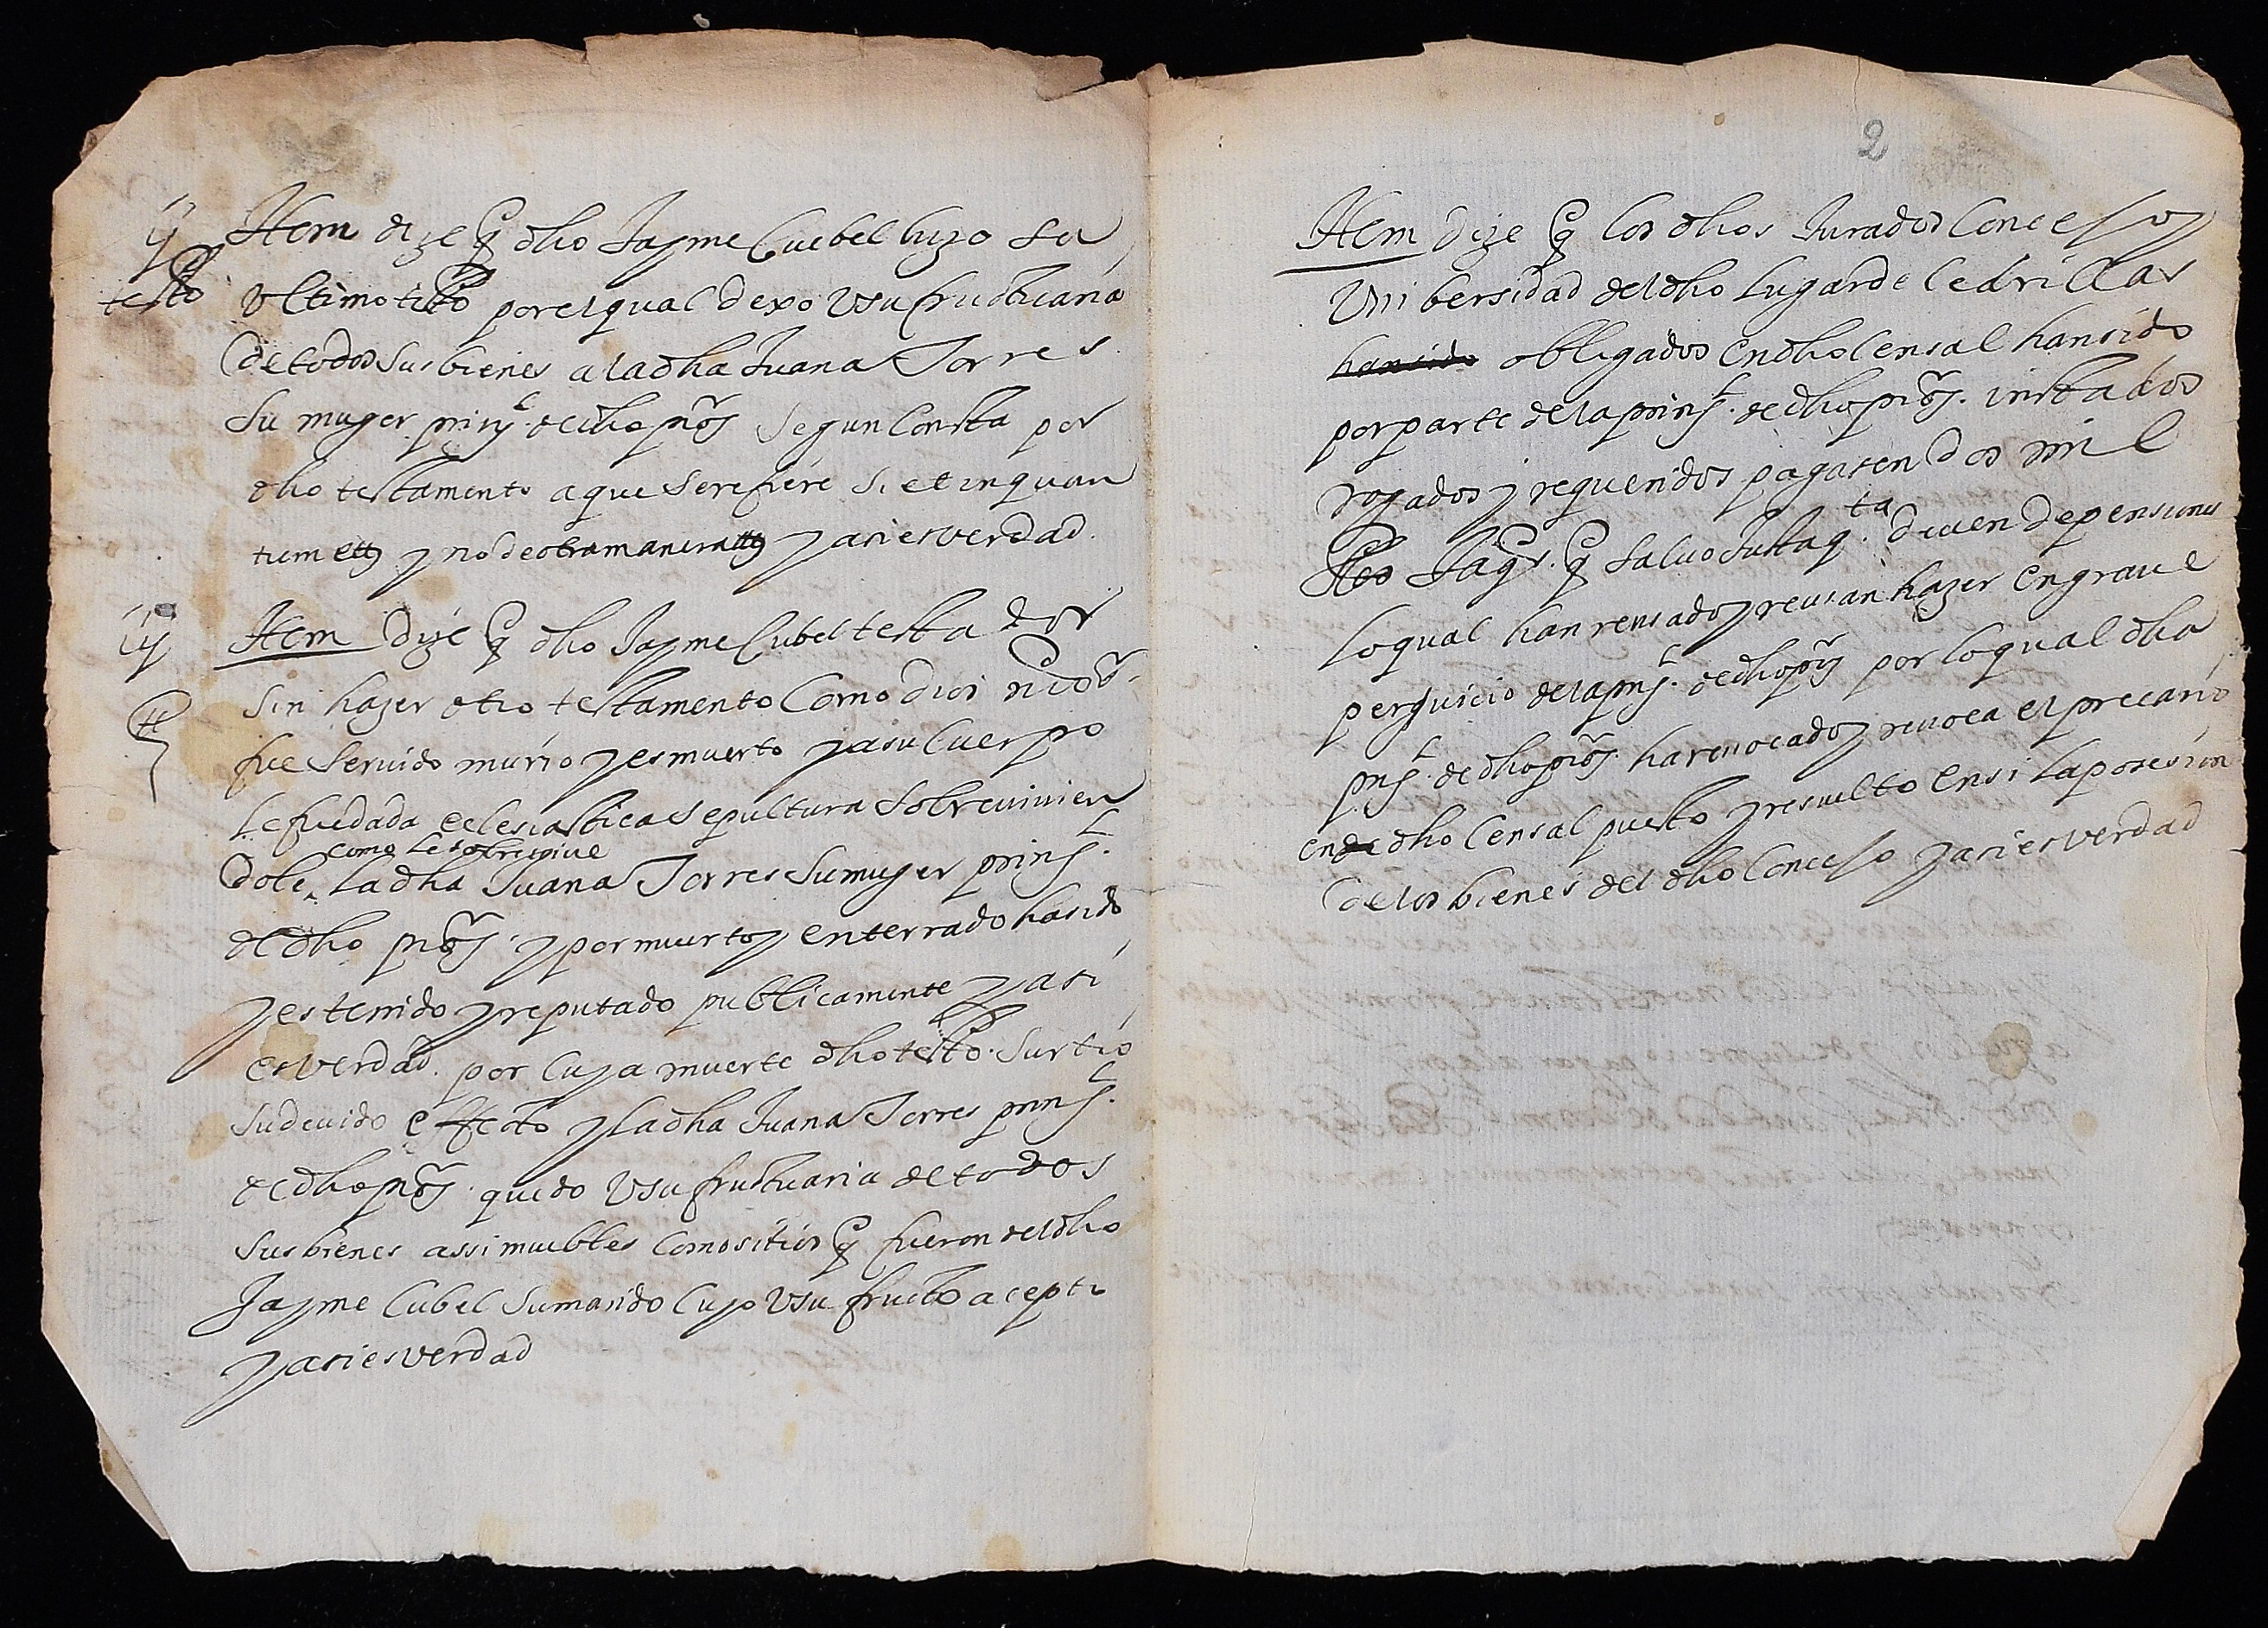 ij
testto
Item dize q dho Jayme Cuebel hizo su
Ultimo testto por el qual dexo Usufructuaria
de todos sus bienes a la dha Juana Torres
su muger prinl de dho pros segun Consta por
dho testamento a que se refiere si et in quan
tum etc y no de otra manera etc y asi es verdad.
iij
Item Dize q dho Jayme Cubel testador
sin hazer otro testamento Como Dios nro sr
fue servido murio y es muerto y a su Cuerpo
Le fue dada eclesiastica sepultura sobrevivien
como le sobrevive
dole la dha Juana Torres su muger prinl
de dho pros y por muerto y enterrado ha sido
y es tenido y reputado publicamente y asi
es verdad. por cuya muerte dho testto surtio
su devido effecto y la dha Juana Torres prinl
de dho pros quedo Usufructuaria de todos
sus bienes assi muebles como sitios q fueron del dho
Jayme Cubel su marido cuyo Usufructo acepto
y asi es verdad
2
Item dize q los dhos Jurados Concejo y
Unibersidad del dho Lugar de Cedrillas
han sido obligados en dho Censal han sido
por parte de la prinl de dho pros instados
rogados y requeridos pagasen dos mil
Jaqs. q salvo Justa qta deven de pensiones
lo qual han rensado y reusan hazer en grave
perjuicio de la prinl de dho pros por lo qual dha
prinl de dho pros ha revocado y revoca el precario
en de dho Censal puesto y resuelto en si la posesion
de los bienes del dho Concejo y asi es verdad